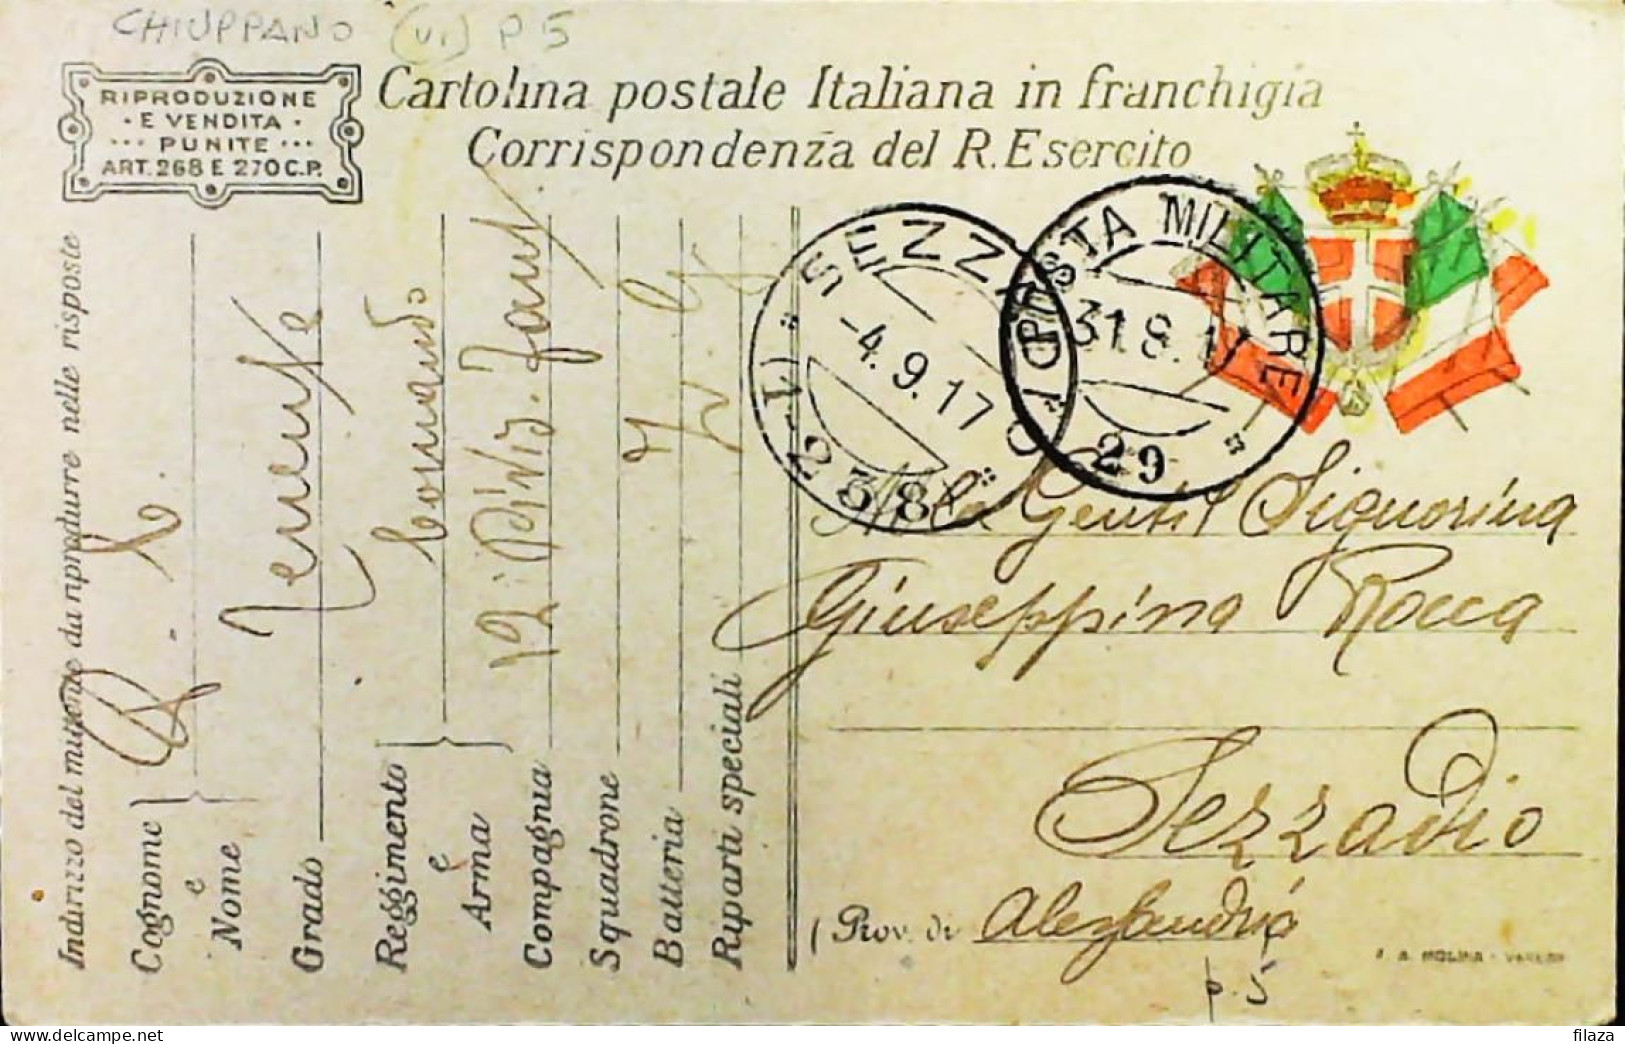 CHIUPPANO (VI) P 5
RIPRODUZIONE
· E VENDITA ·
··· PUNITE ···
ART. 268 E 270 C.P.
Cartolina postale Italiana in franchigia
Corrispondenza del R. Esercito
SEZZADIO
-4.9.17
238
POSTA MILITARE
31.8.17
29
Alla Gentil Signorina
Giuseppina Rocca
Sezzadio
(Prov. di Alessandria
p. s
A. MOLINA - VARESE
Indirizzo del mittente da riprodurre nelle risposte
Cognome
e
Nome
Grado Tenente
Reggimento Comando
e
Arma 29ª Divis. Fant
Compagnia
Squadrone
Batteria
Riparti speciali
filaza